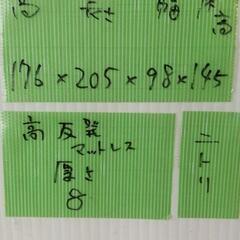 高 長さ 幅
176×205×98×145
高反発
マットレス
厚さ
8
ニトリ